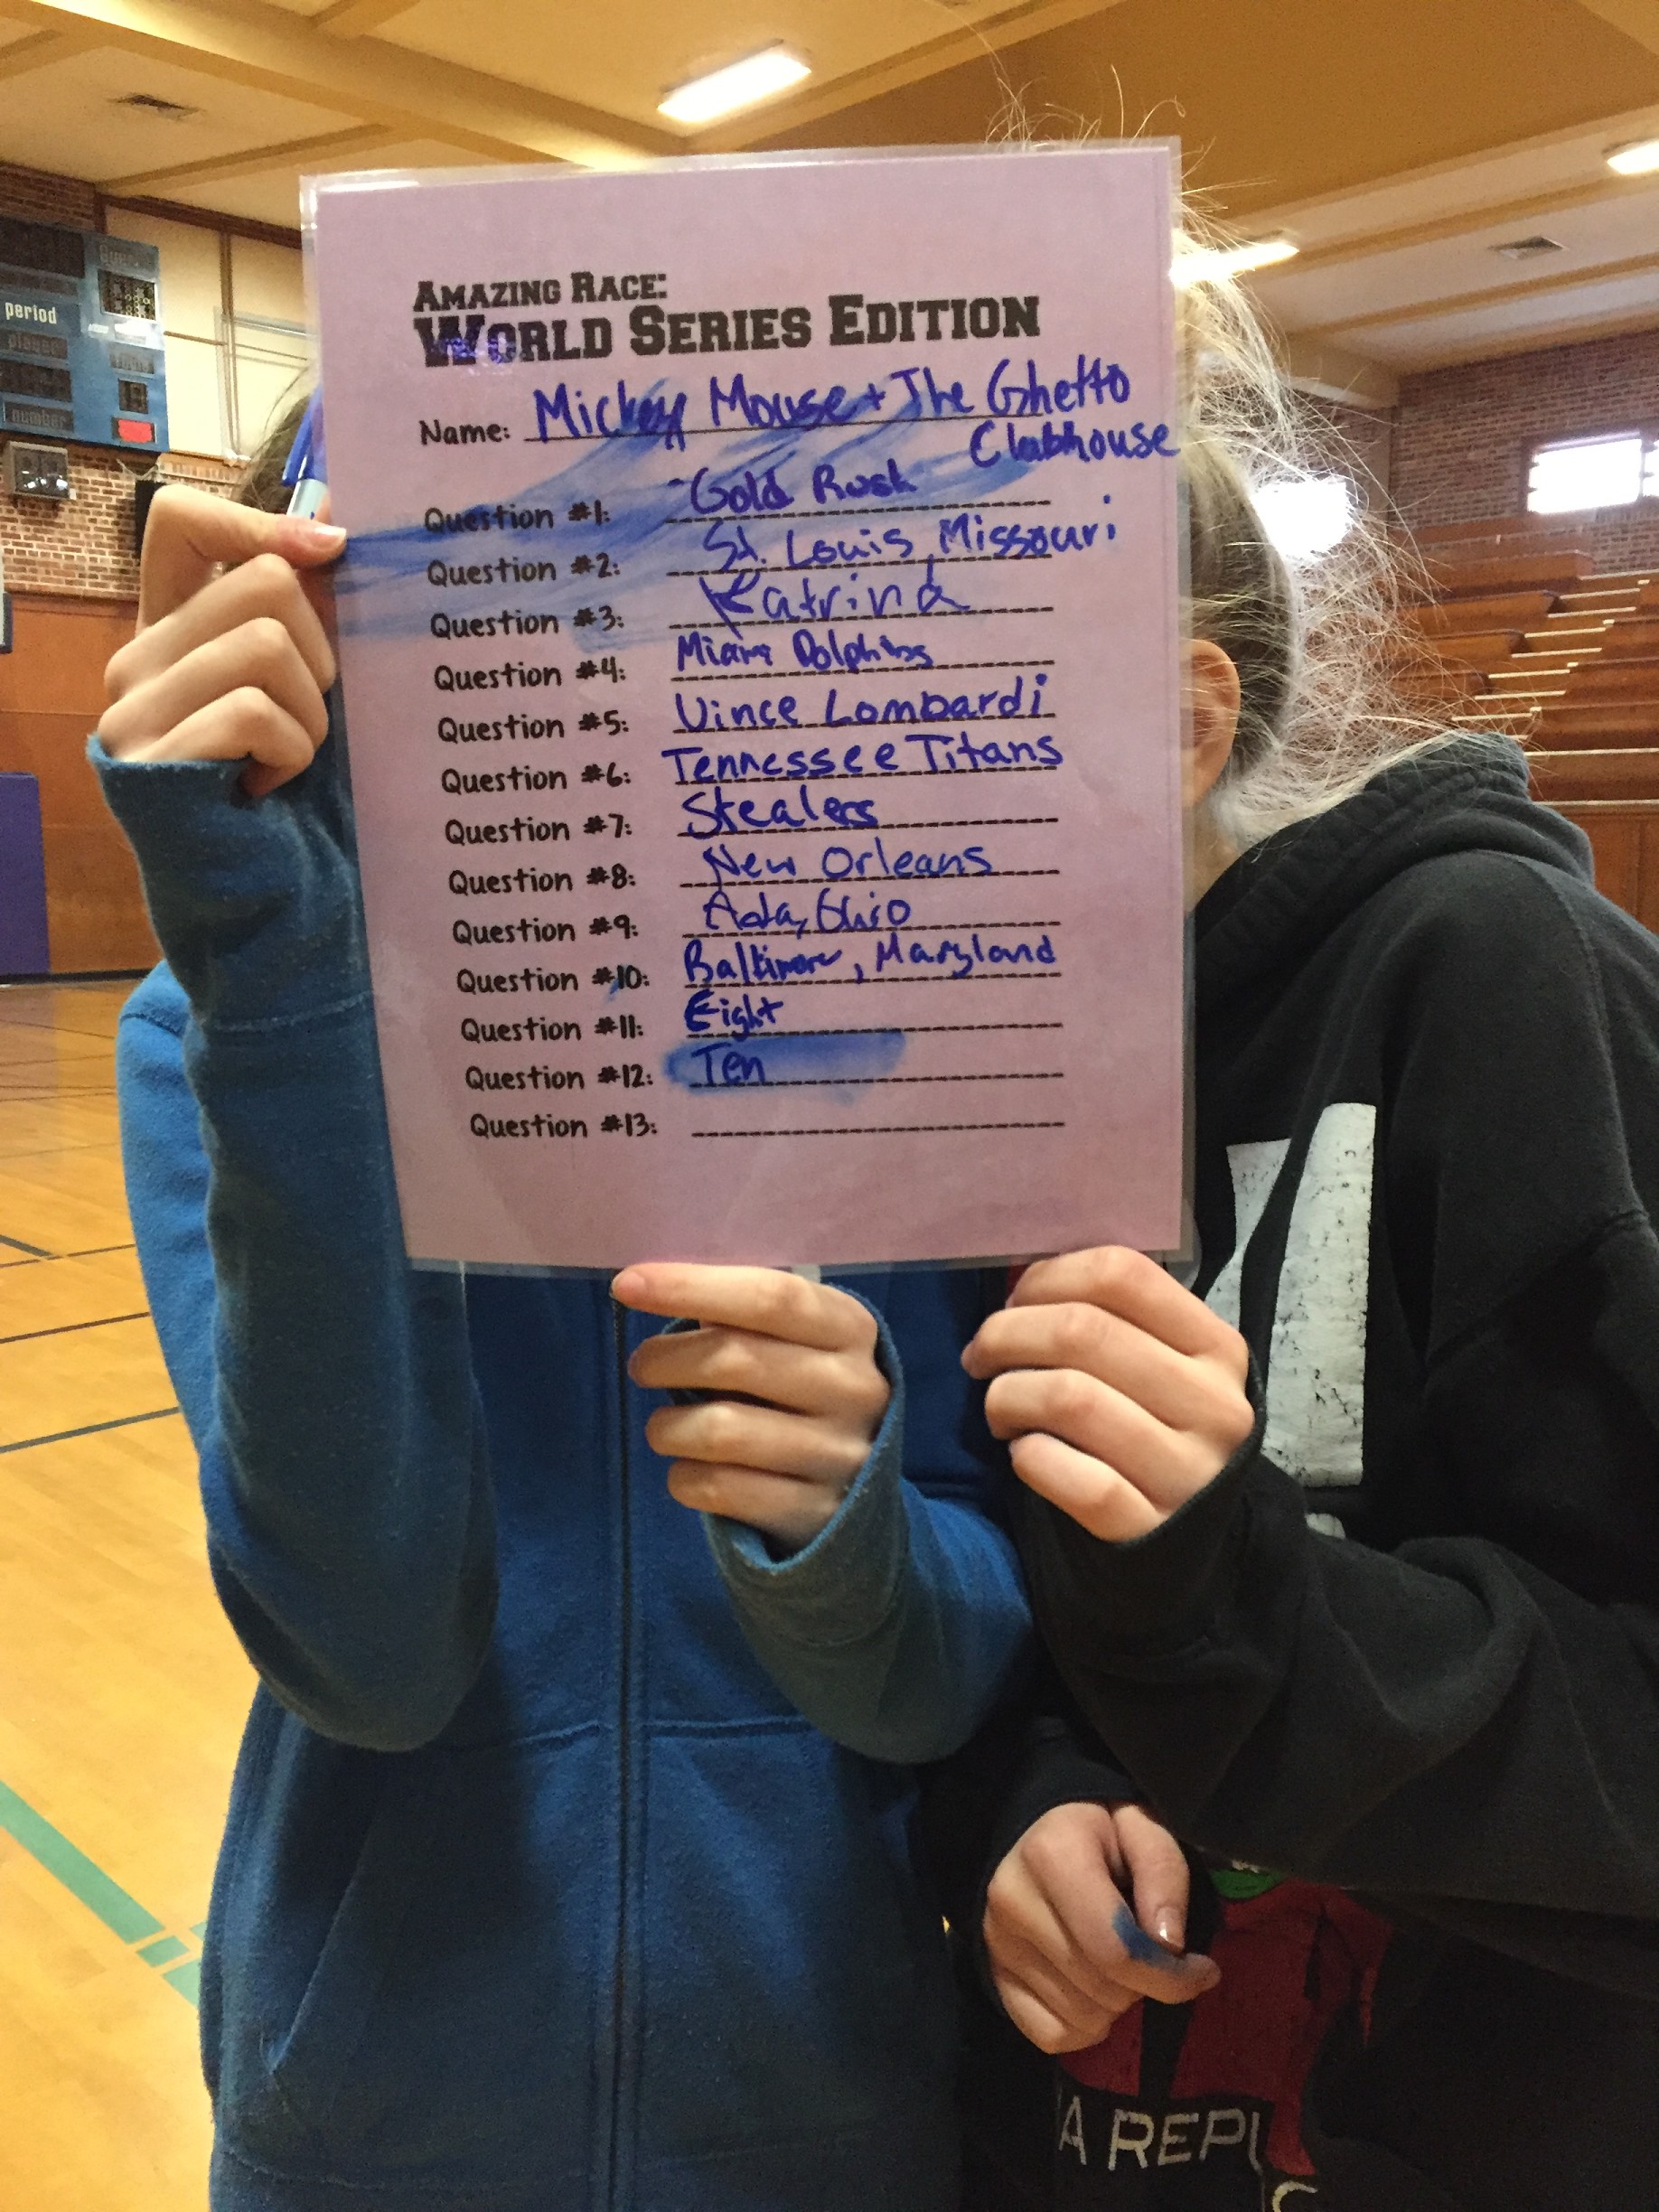 period
player
number
AMAZING RACE:
WORLD SERIES EDITION
Name: Mickey Mouse + The Ghetto
Clubhouse
Question #1: Gold Rush
Question #2: St. Louis, Missouri
Question #3: Katrina
Question #4: Miami Dolphins
Question #5: Vince Lombardi
Question #6: Tennessee Titans
Question #7: Stealers
Question #8: New Orleans
Question #9: Ada, Ohio
Question #10: Baltimore, Maryland
Question #11: Eight
Question #12: Ten
Question #13:
A REPU